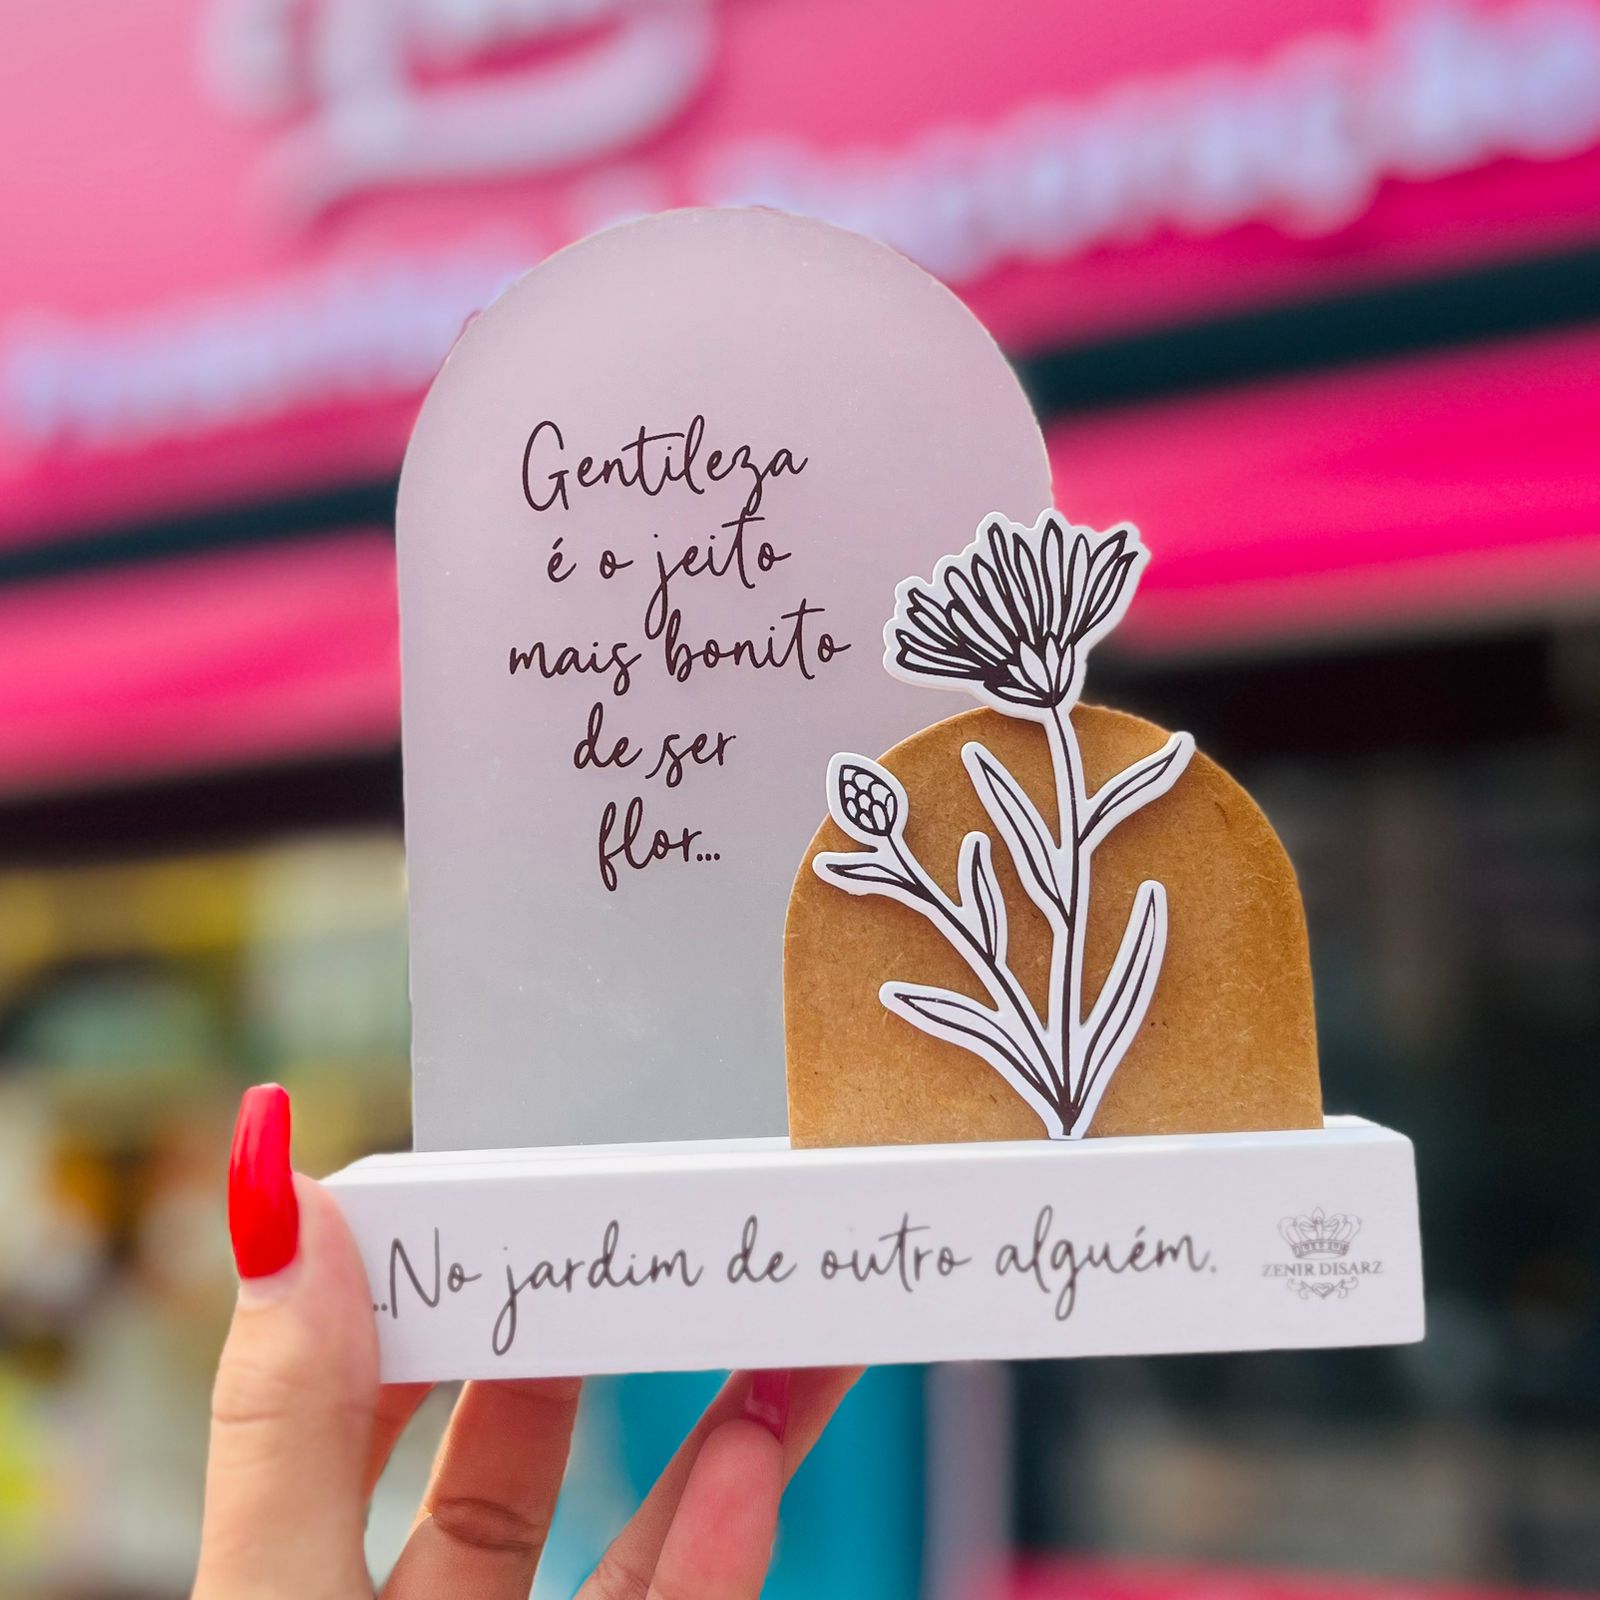 Gentileza
é o jeito
mais bonito
de ser
flor...
...No jardim de outro alguém.
ZENIR DISARZ